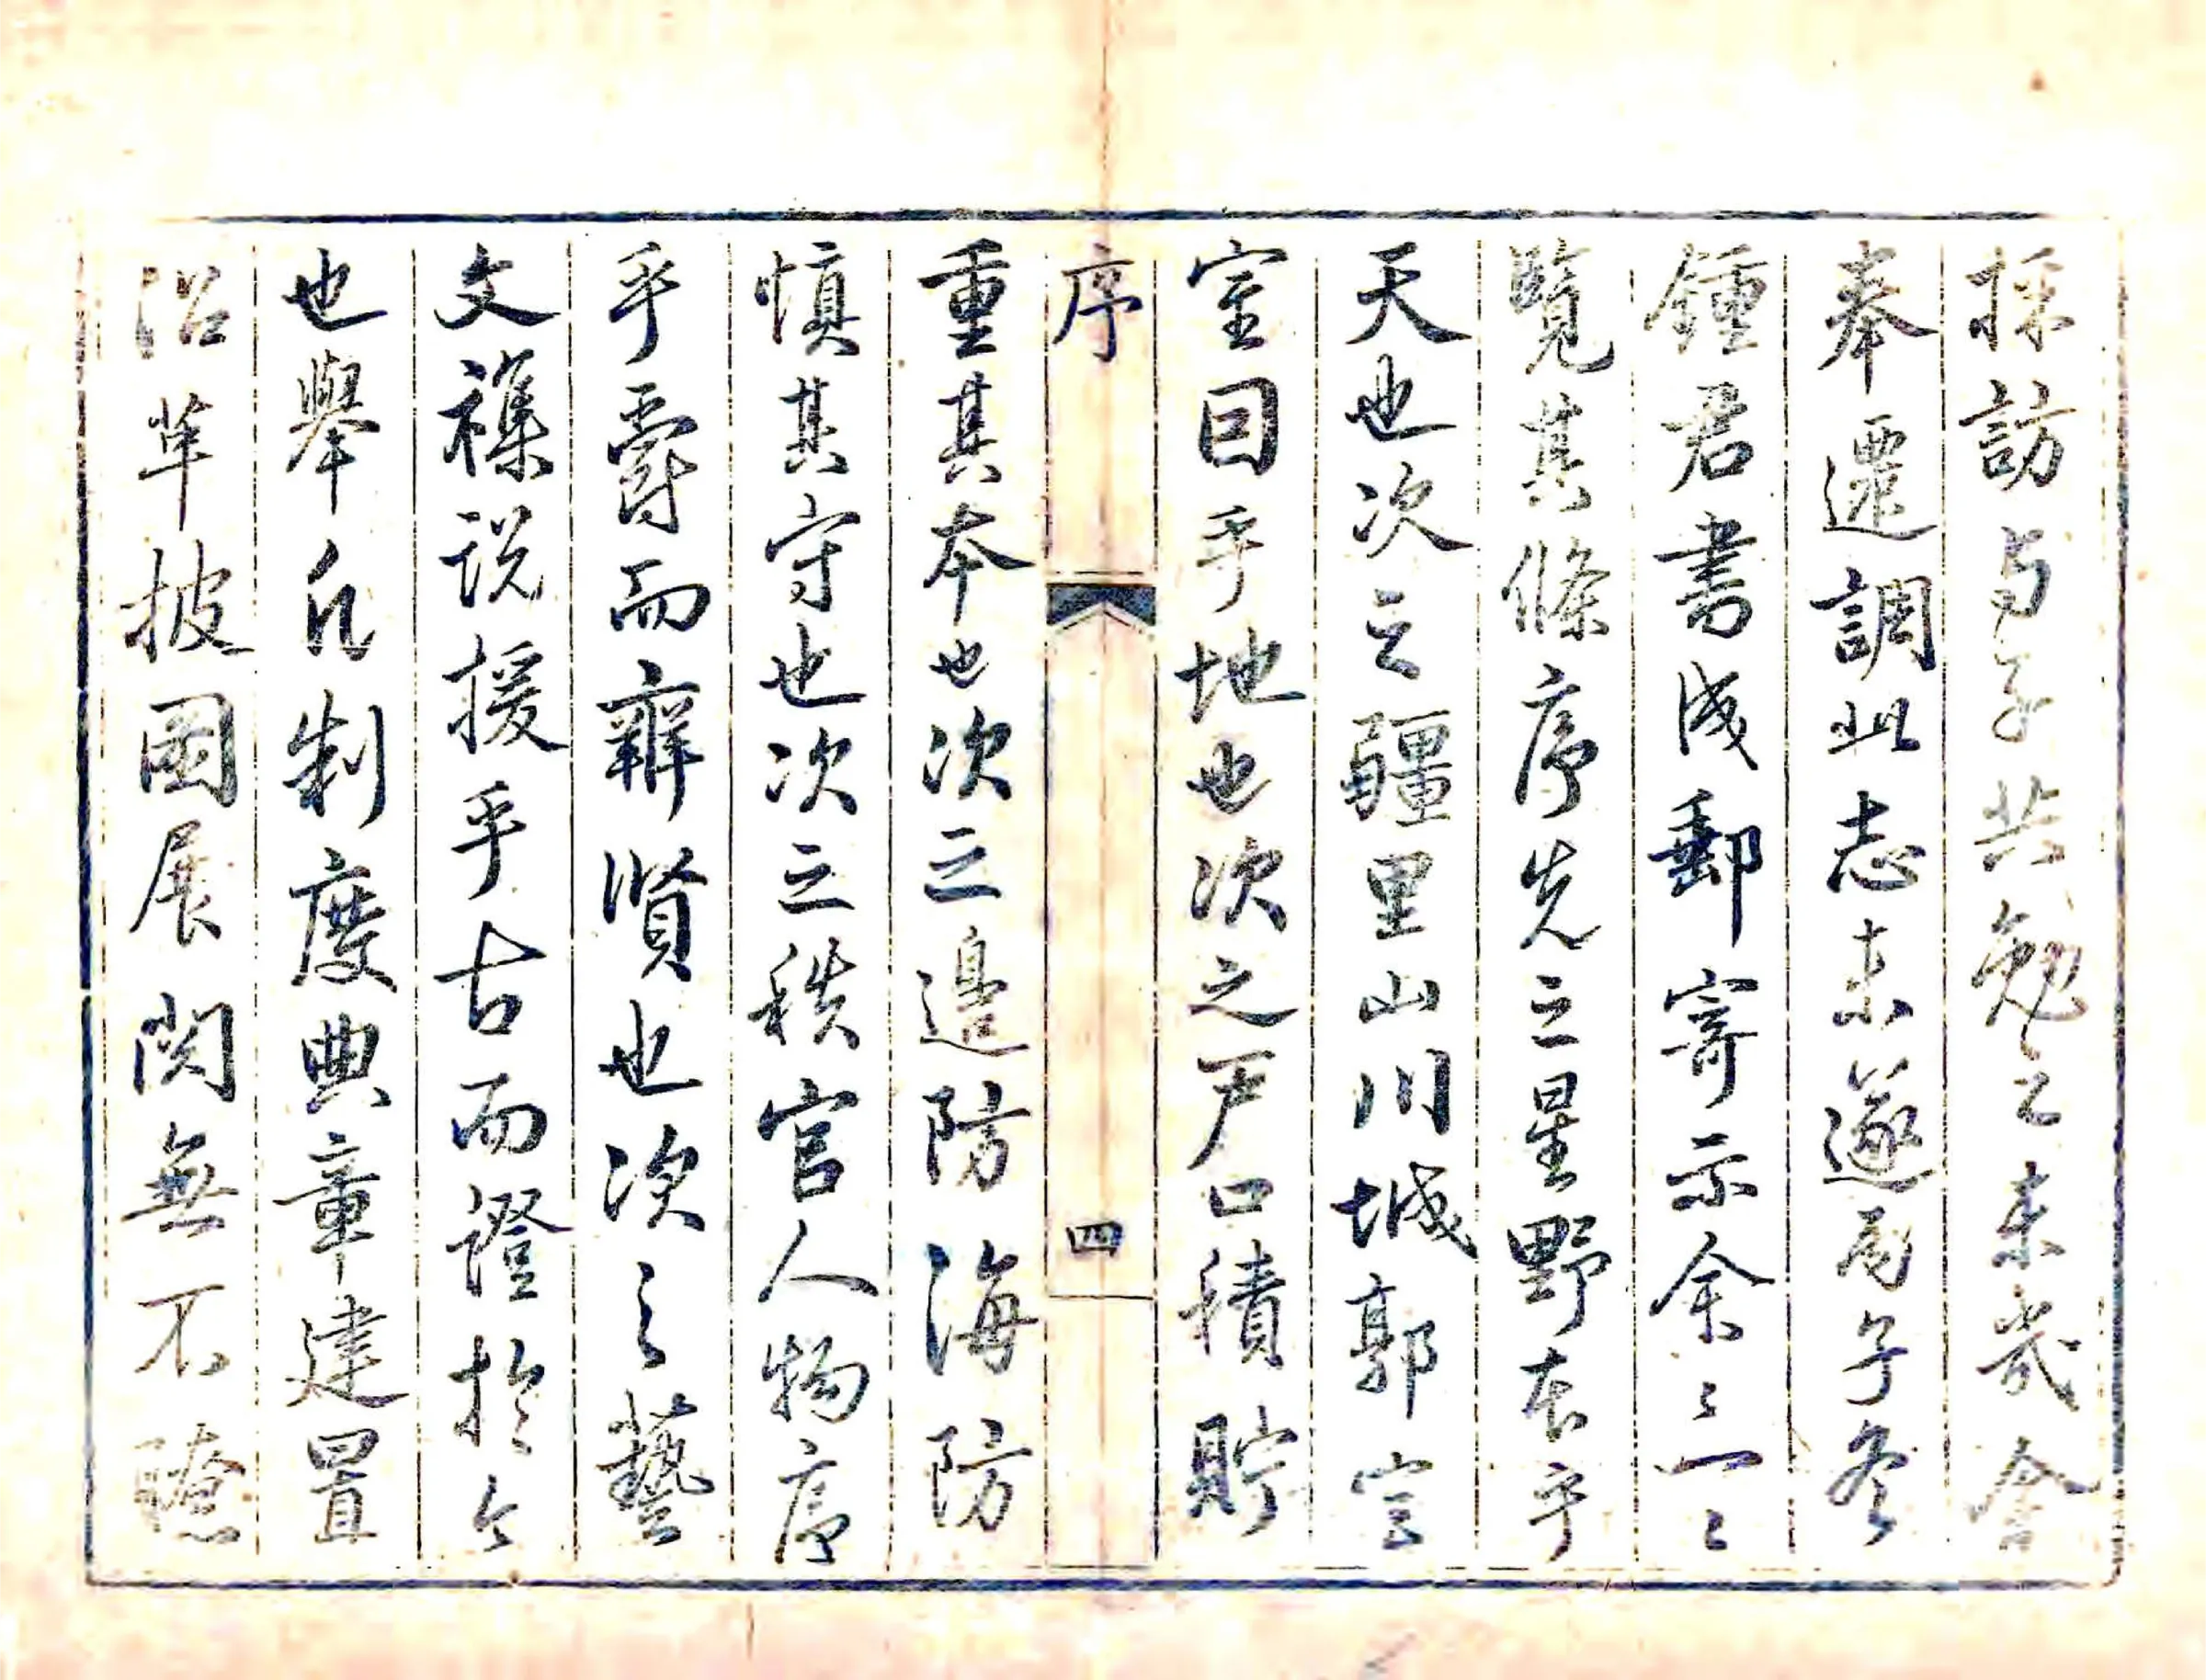 採訪与子共勉之未幾余
奉遷調此志未遂子冬
鍾君書成郵寄示余〻一〻
覽其條序先之星野本乎
天也次之疆里山川城郭宮
室因乎地也次之戶口積貯
序
四
重其本也次之邊防海防
慎其守也次之秩官人物序
乎爵而辨賢也次之藝
文襍説援乎古而證於今
也舉凡制度典章建置
沿革披圖展閱無不瞭